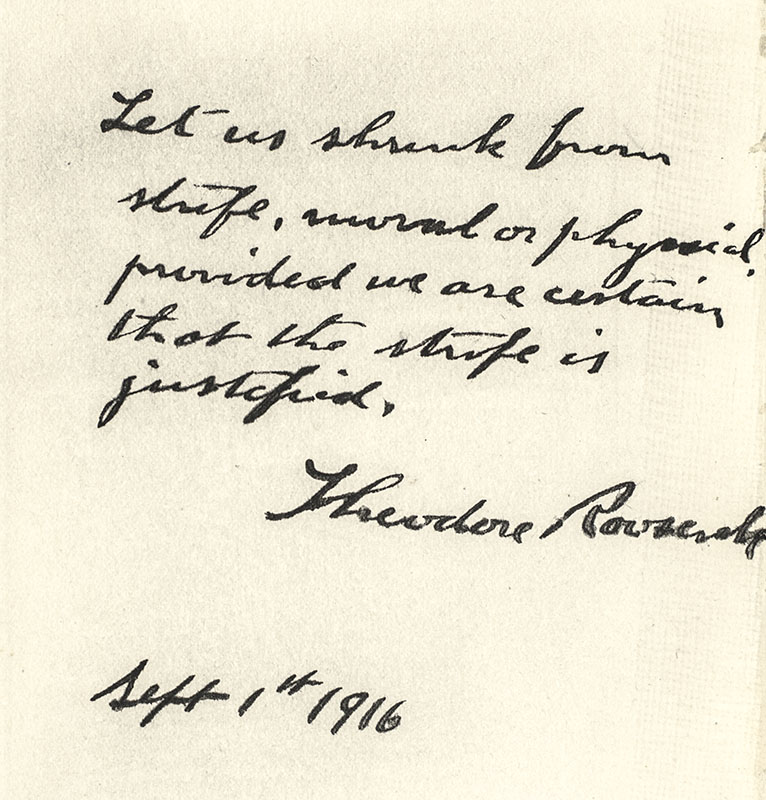 Let us shrink from
strife, moral or physical,
provided we are certain
that the strife is
justified.
Theodore Roosevelt
Sept 1st 1916